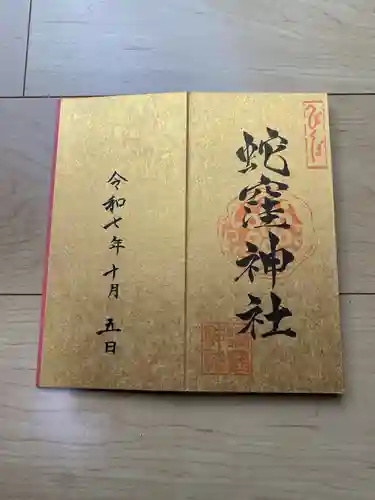 蛇窪神社
令和七年十月五日